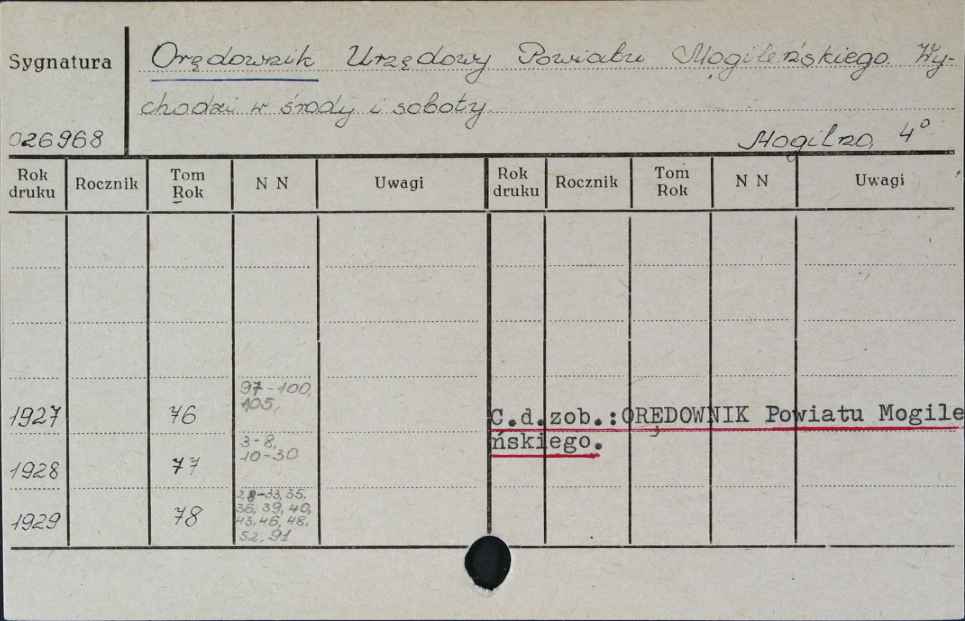 Sygnatura
Orędownik Urzędowy Powiatu Mogileńskiego. Wy-
chodzi w środy i soboty
026968
Mogilno, 4°
Rok druku Rocznik Tom Rok N N Uwagi Rok druku Rocznik Tom Rok N N Uwagi
97-100,
1927 76 105,
C.d.zob.:ORĘDOWNIK Powiatu Mogile
ńskiego.
3-8,
1928 77 10-30
28-33, 35,
36, 39, 40,
1929 78 43, 46, 48,
52, 91